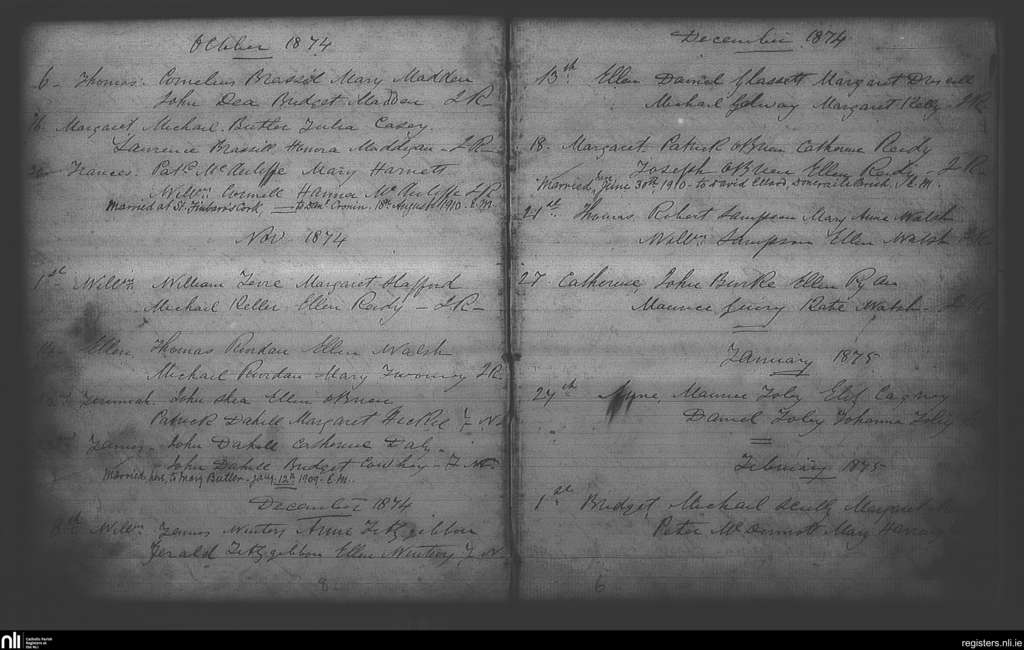 October 1874
6 - Thomas. Cornelius Brassil Mary Madden
John Dea Bridget Madden J R
16. Margaret, Michael Butler Julia Casey
Laurence Brassill Honora Maddigan - J R
Frances. Patk McAuliffe Mary Harnett
Willm Connell Hanna McAuliffe J R
Married at St. Finbarr's Cork, to Danl Cronin. 18th August 1910. E.M.
Nov 1874
1st Willm William Margaret Stafford
Michael Keller Ellen Ready - J R -
Ellen, Thomas Riordan Ellen Walsh
Michael Riordan Mary Twomey J R
Jeremiah. John Shea Ellen O'Brien
Patrick Dahill Margaret T N
James - John Dahill Catherine Daly
John Dahill Bridget Cowhey - T N
Married here, to Mary Butler - Jany. 12th 1909 - E.M.
December 1874
Willm James Winters Anne Fitzgibbon
Gerald Fitzgibbon Ellen T N
8
December 1874
13th Ellen Daniel Glassett Margaret Driscoll
Michael Galway Margaret Kelly - J R
18. Margaret Patrick O'Brien Catherine Ready
Joseph O'Brien Ellen Ready - J R
Married, here June 30th 1910 - to David Ellard, Doneraile Parish. E.M.
21st Thomas, Robert Sampson Mary Anne Walsh
Willm Sampson Ellen Walsh
27. Catherine, John Burke Ellen Ryan
Maurice Kate Walsh
January 1875
24th Maurice Foley Eliz
Daniel Foley Johanna Foley
February 1875
1st Bridget, Michael Scully Margaret
Peter McDermott Mary
6
nli
Catholic Parish
Registers at
the NLI
registers.nli.ie